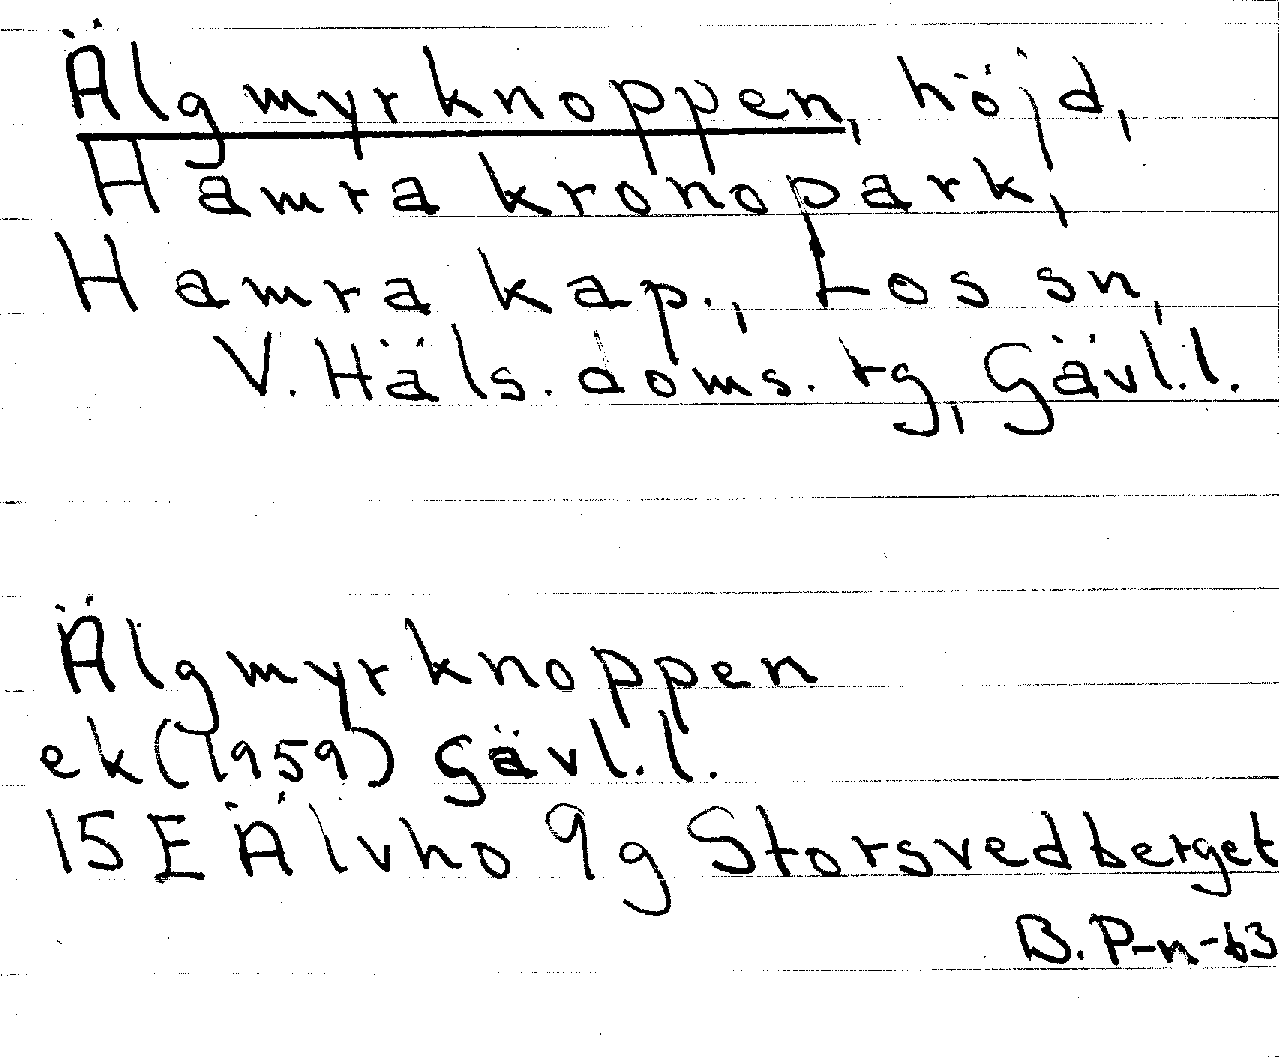 Älgmyrknoppen, höjd,
Hamra kronopark,
Hamra kap., Los sn,
V. Häls. doms. tg, Gävl. l.
Älgmyrknoppen
ek (1959) Gävl. l.
15 E Älvho 9g Storsvedberget
B. P-n-63